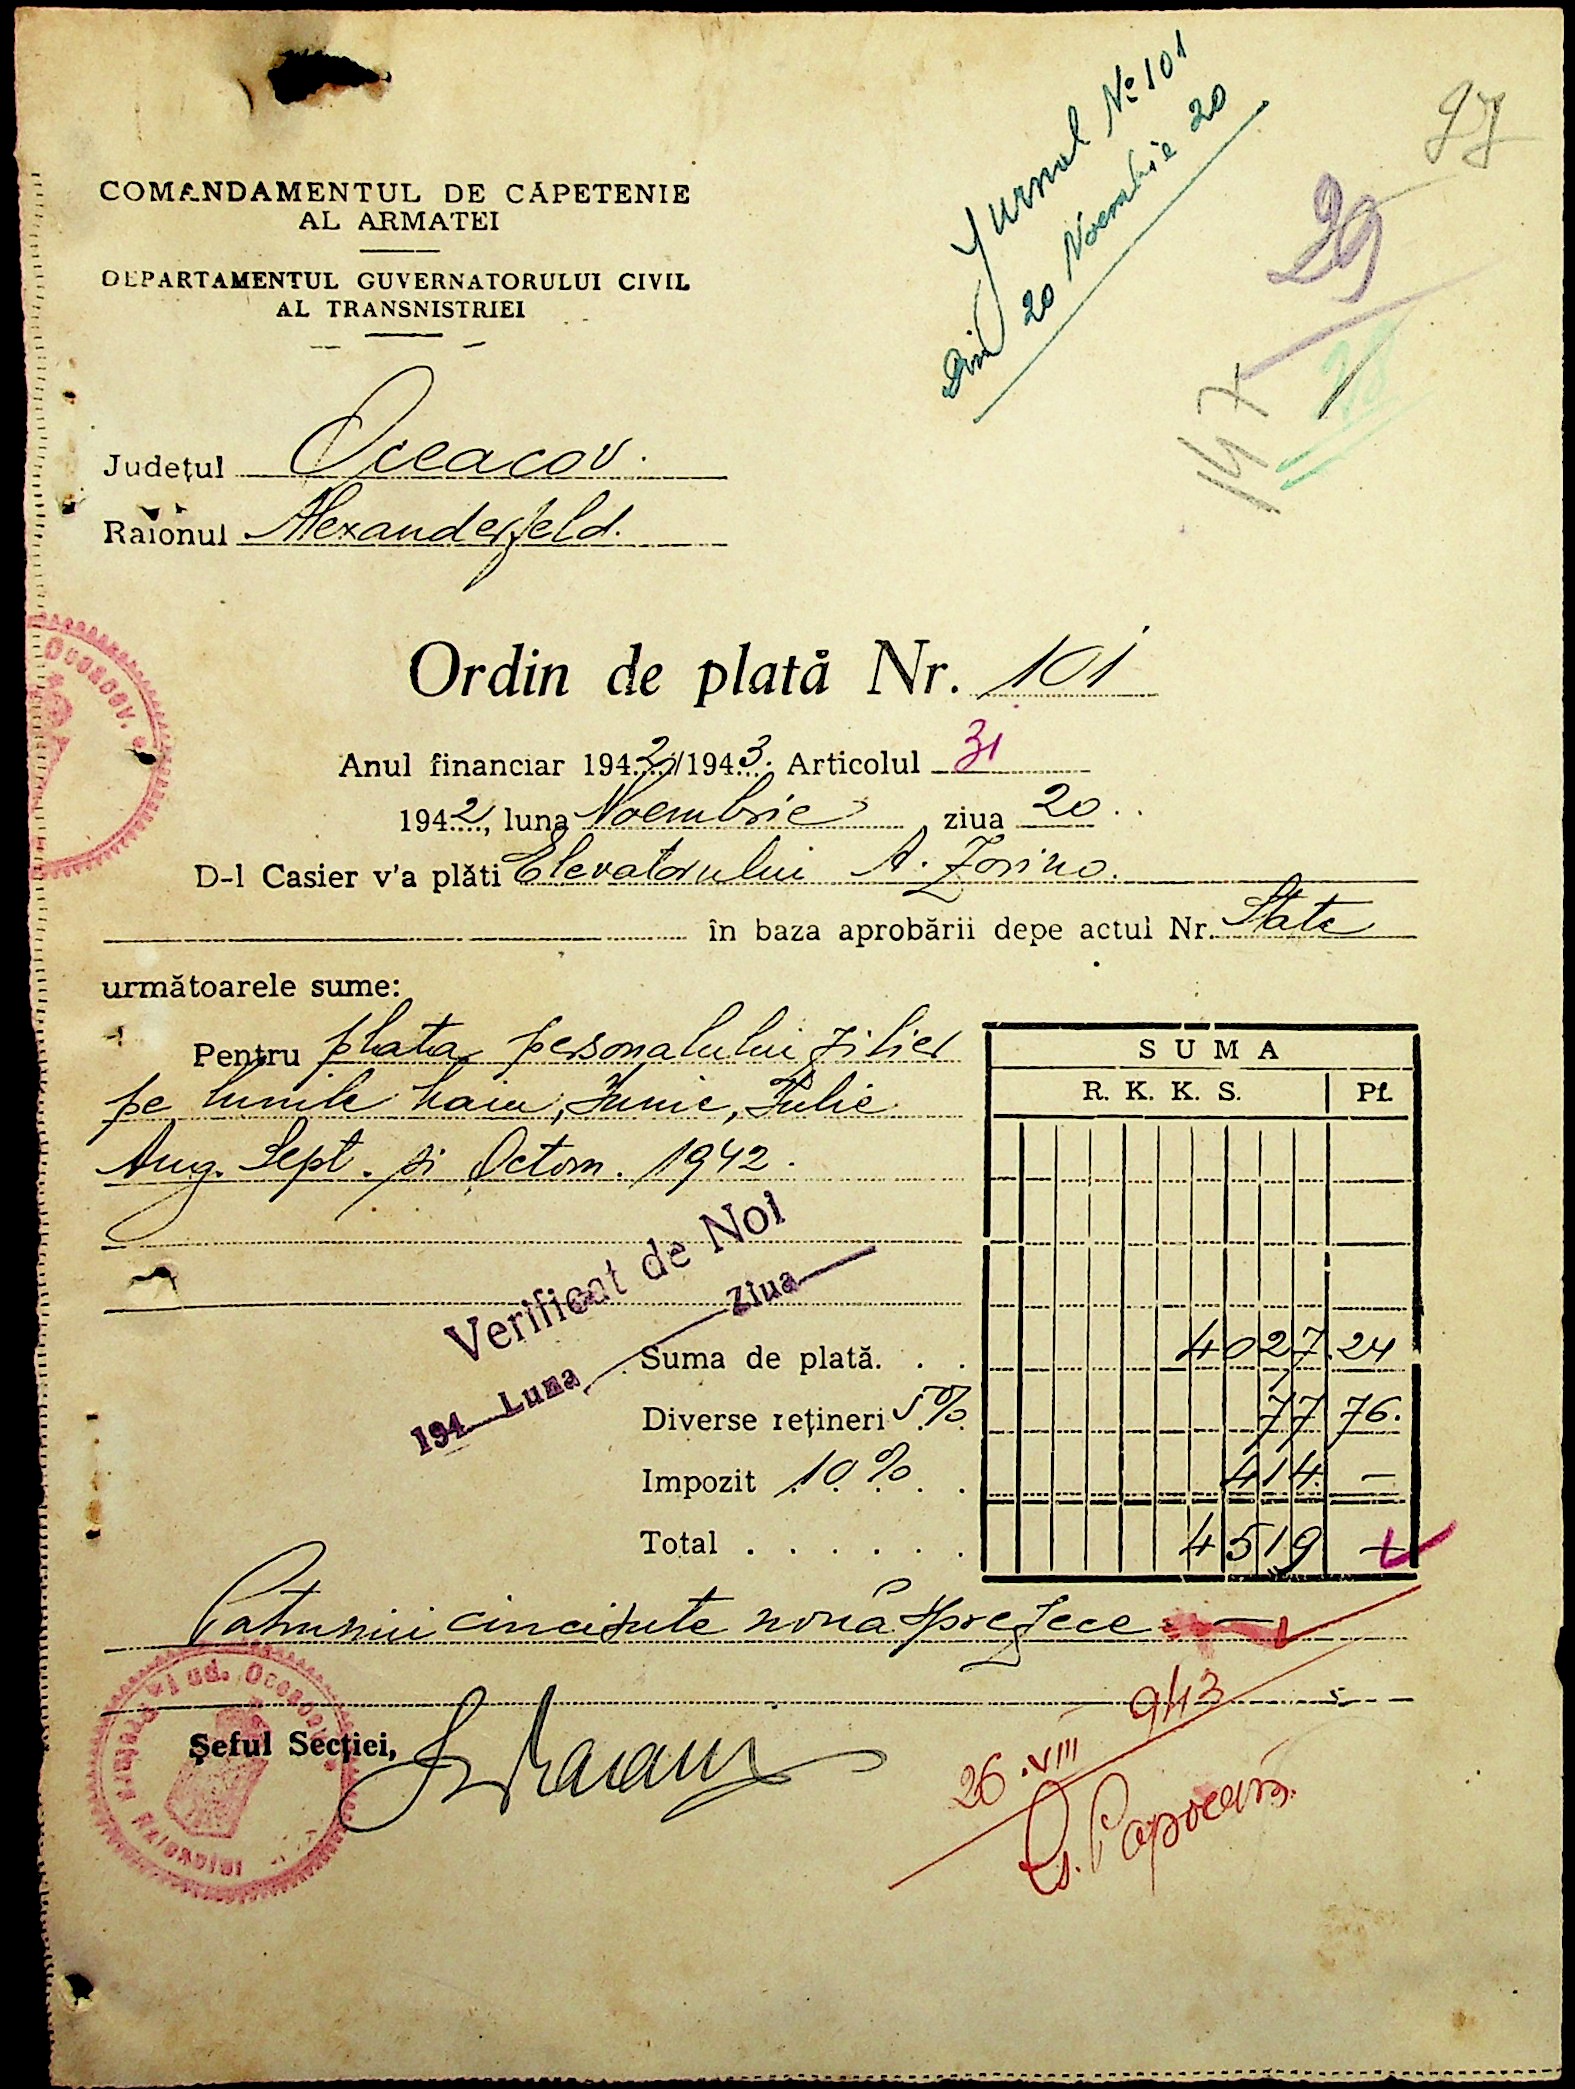 Jurnal № 101
din 20 Noembrie 20
97
29
28
147
COMANDAMENTUL DE CĂPETENIE
AL ARMATEI
DEPARTAMENTUL GUVERNATORULUI CIVIL
AL TRANSNISTRIEI
Județul Oceacov.
Raionul Alexanderfeld.
Ordin de plată Nr. 101
Anul financiar 1942/1943. Articolul 31
1942, luna Noembrie ziua 20
D-l Casier v'a plăti Elevatorului A. Zorino.
în baza aprobării depe actul Nr. State
următoarele sume:
Pentru plata personalului zilier
pe lunile Maiu, Iunie, Iulie
Aug. Sept. și Octom. 1942.
SUMA
R. K. K. S. Pf.
Verificat de Noi
194 Luna Ziua
Suma de plată. . . 4027 24
Diverse rețineri 5% 77 76.
Impozit 10% . . 414 —
Total . . . . . . 4519 —
Patrumii cincisute nouăsprezece —
Șeful Secției,
26.VIII 943
Oceacov.
Pretura Raionului
Jud. Oceacov